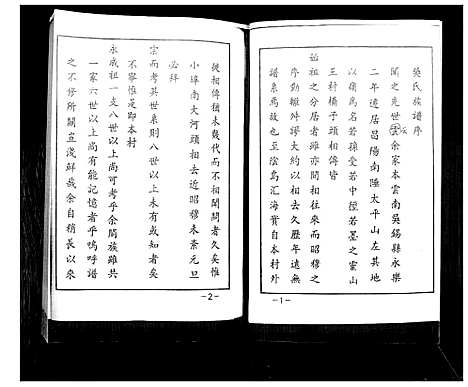 吳氏族譜序
聞之先世云余家本雲南吳錫縣永樂
二年遷居昌陽南陲太平山左其地
以嶺為名若孫受若中徑若墨之靈山
三村橋子頭相傳皆
始祖之分居者雖亦間相往來而昭穆之
序勦輙舛謬大約以相去久歷年遠無
譜系焉故也至陰島匯海賓自本村外
-1-
徙相傳猶未幾代而不相聞問者久矣惟
小埠南大河頭相去近昭穆未紊元旦
必拜
宗而考其世系則八世以上未有或知者矣
不寧惟是即本村
永成祖一支八世以上尚可考乎余闔族雖共
一家六世以上尚有能記憶者乎嗚呼譜
之不修所關豈淺鮮哉余自稍長以來
-2-